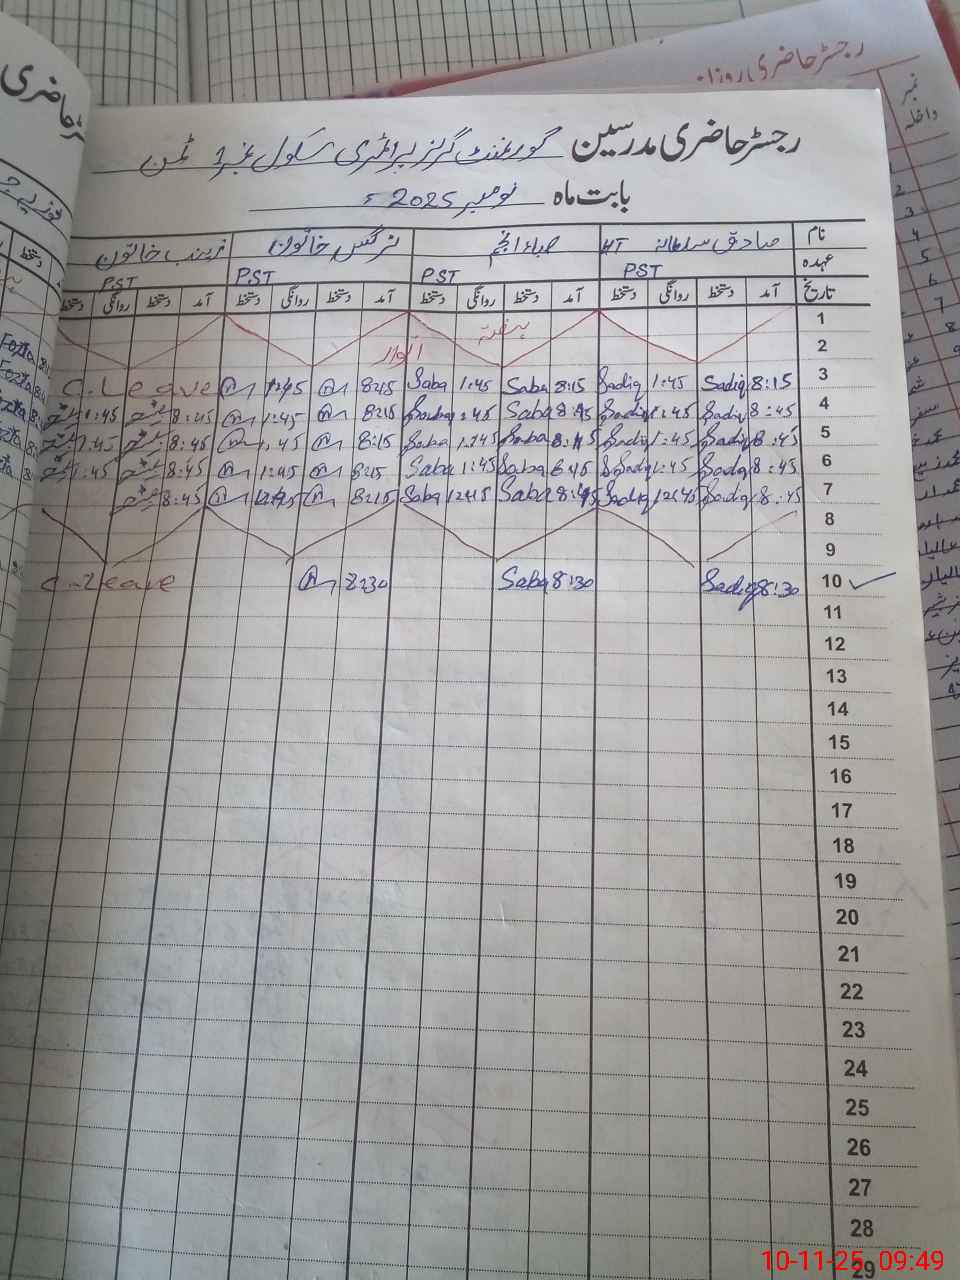 رجسٹر حاضری مدرسین گورنمنٹ گرلز پرائمری سکول نمبر 1 ٹمن
بابت ماہ نومبر 2025ء
نام صادق سلطانہ HT صباء انجم نرگس خاتون زینب خاتون
عہدہ PST PST PST PST
تاریخ آمد دستخط روانگی دستخط آمد دستخط روانگی دستخط آمد دستخط روانگی دستخط آمد دستخط روانگی دستخط
1 ہفتہ
2 اتوار
3 8:15 Sadiq 1:45 Sadiq 8:15 Saba 1:45 Saba 8:15 1:45 C.Leave
4 8:45 Sadiq 1:45 Sadiq 8:45 Saba 1:45 Saba 8:15 1:45 8:45 1:45
5 8:45 Sadiq 1:45 Sadiq 8:45 Saba 1:45 Saba 8:15 1:45 8:45 1:45
6 8:45 Sadiq 1:45 Sadiq 8:45 Saba 1:45 Saba 8:15 1:45 8:45 1:45
7 8:45 Sadiq 12:45 Sadiq 8:45 Saba 12:15 Saba 8:15 12:45 8:45
8
9
10 8:30 Sadiq 8:30 Saba 8:30 C.Leave
11
12
13
14
15
16
17
18
19
20
21
22
23
24
25
26
27
28
29
رجسٹر حاضری روزانہ
نمبر داخلہ
2
3
4
5
6
7
10-11-25 09:49